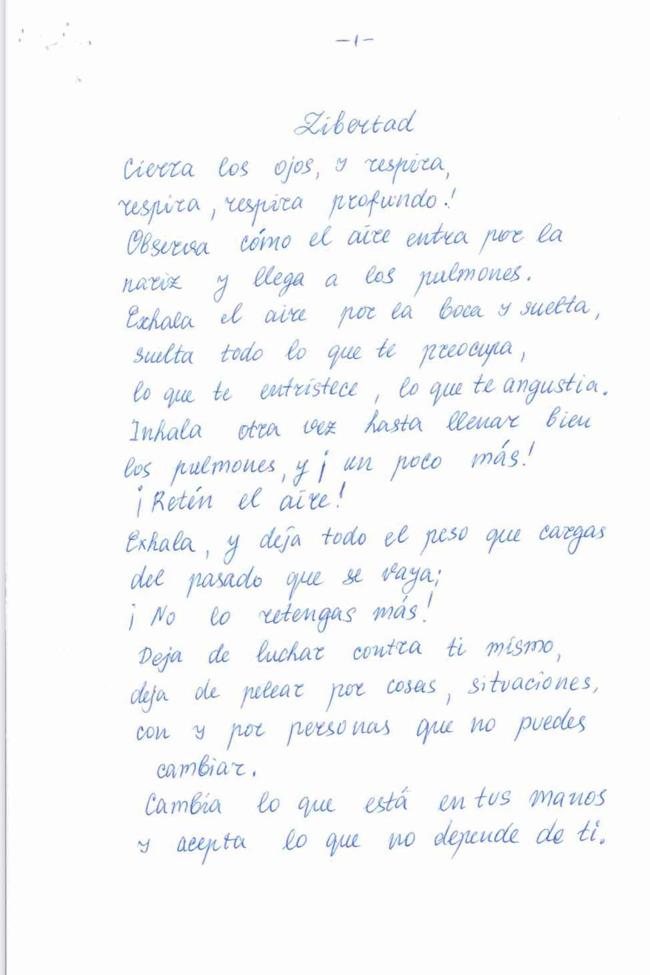 -1-
Libertad
Cierra los ojos, y respira,
respira, respira profundo!
Observa cómo el aire entra por la
nariz y llega a los pulmones.
Exhala el aire por la boca y suelta,
suelta todo lo que te preocupa,
lo que te entristece, lo que te angustia.
Inhala otra vez hasta llenar bien
los pulmones, y ¡un poco más!
¡Retén el aire!
Exhala, y deja todo el peso que cargas
del pasado que se vaya;
¡No lo retengas más!
Deja de luchar contra ti mismo,
deja de pelear por cosas, situaciones,
con y por personas que no puedes
cambiar.
Cambia lo que está en tus manos
y acepta lo que no depende de ti.